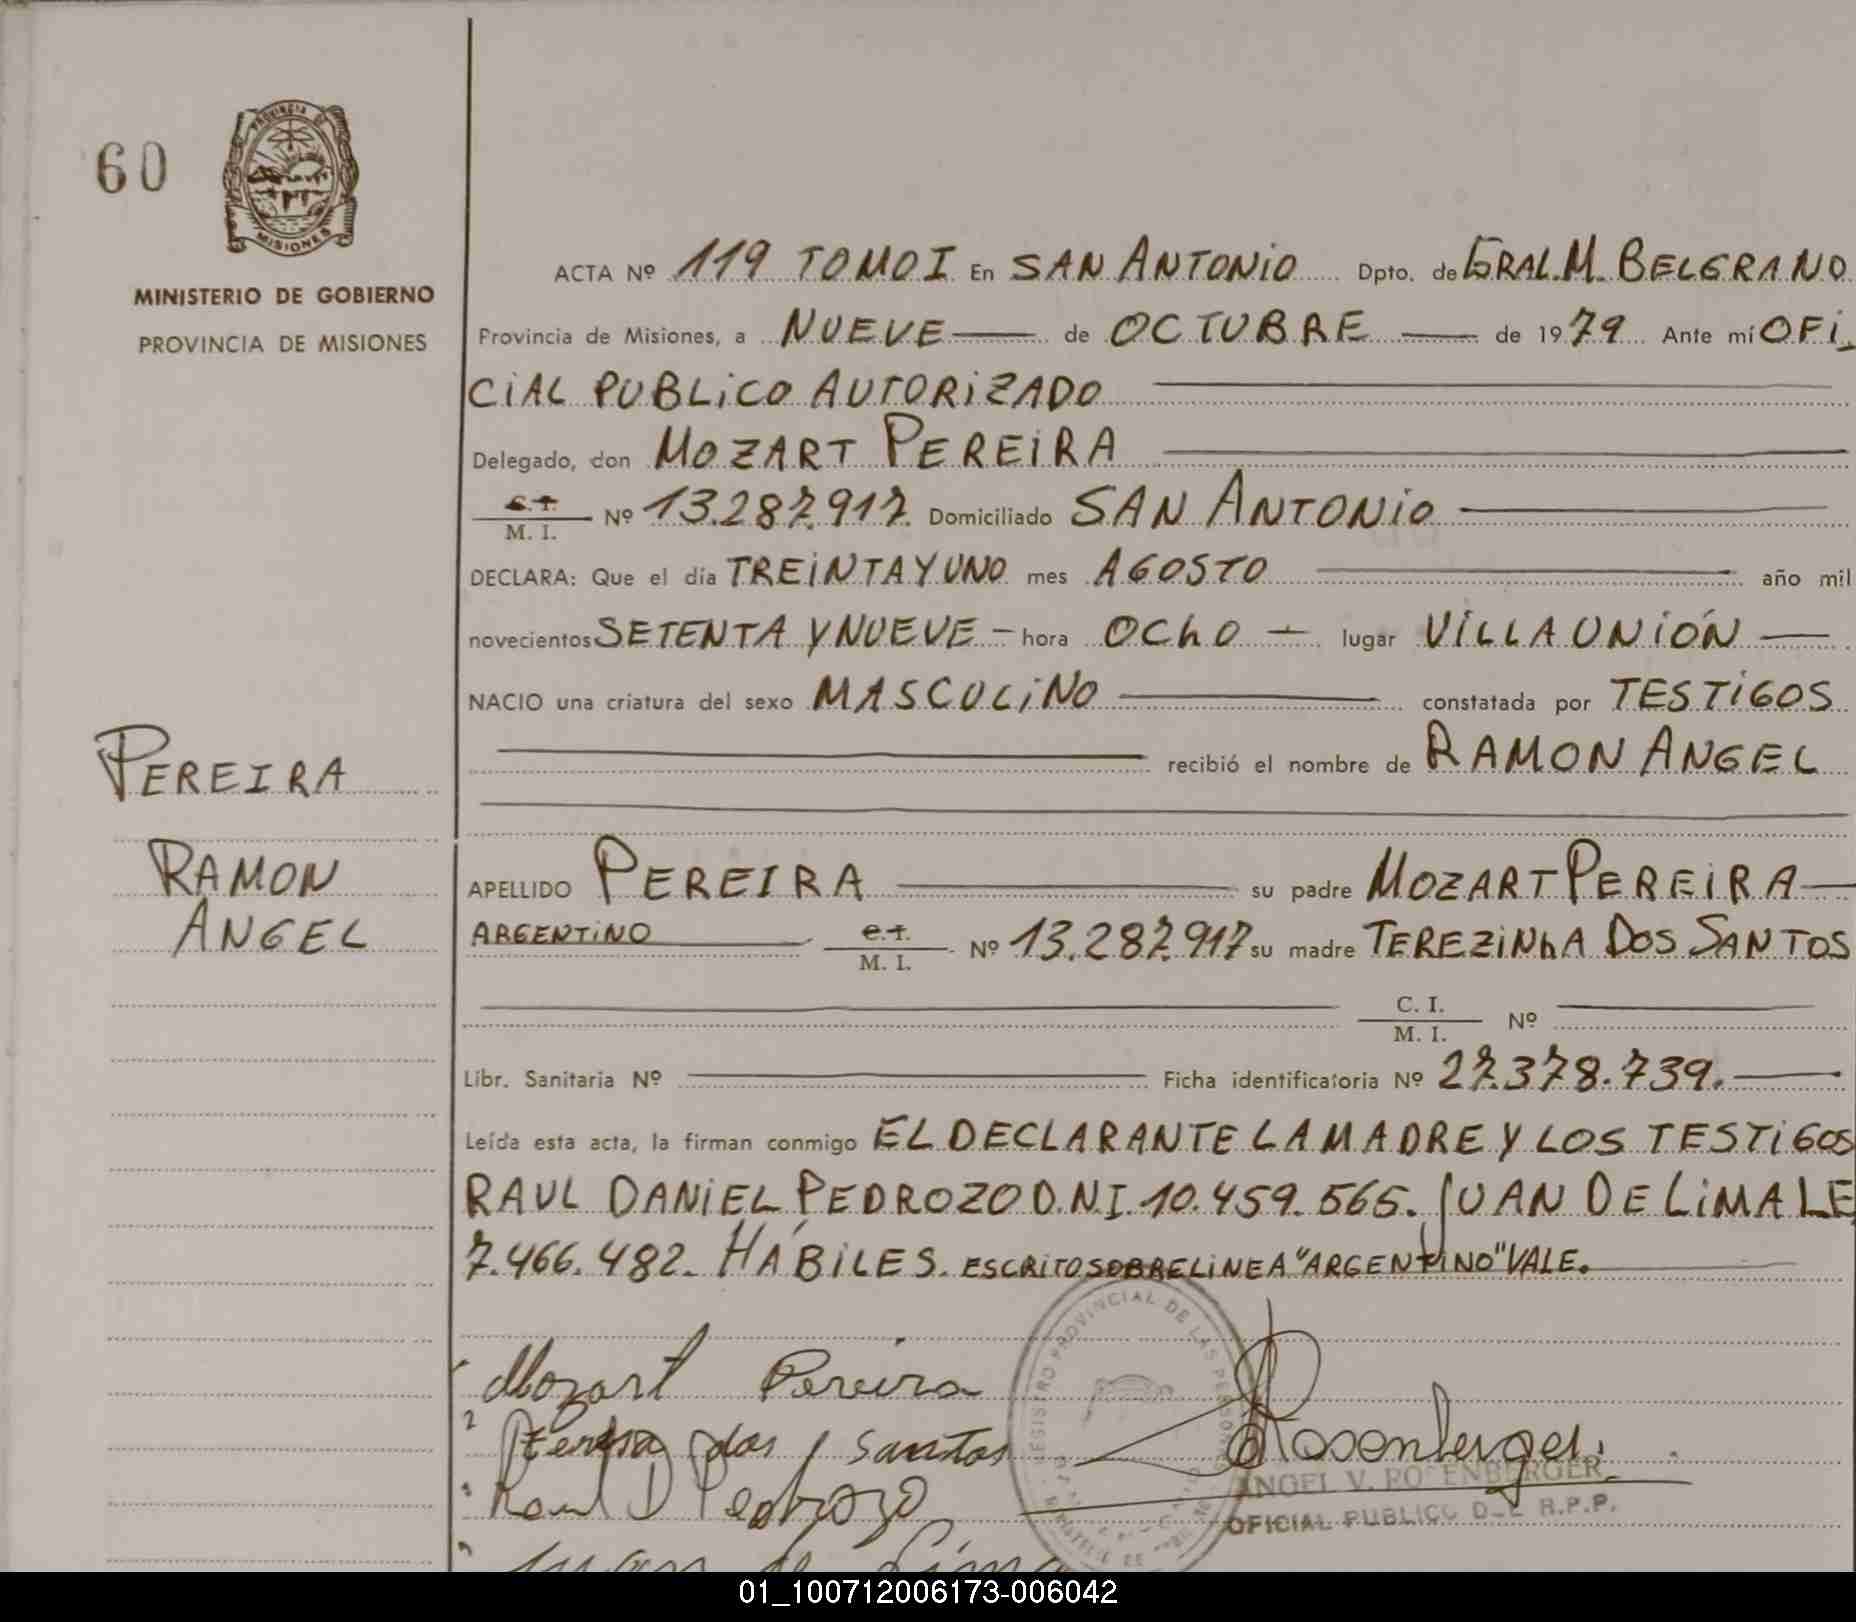 60
PROVINCIA DE
MISIONES
MINISTERIO DE GOBIERNO
PROVINCIA DE MISIONES
ACTA Nº 119 TOMO I En SAN ANTONIO Dpto. de GRAL. M. BELGRANO
Provincia de Misiones, a NUEVE de OCTUBRE de 1979 Ante mí OFI_
CIAL PUBLICO AUTORIZADO
Delegado, don MOZART PEREIRA
C.I. M. I. Nº 13.287.917. Domiciliado SAN ANTONIO
DECLARA: Que el día TREINTA Y UNO mes AGOSTO año mil
novecientos SETENTA Y NUEVE - hora OChO lugar VILLA UNIÓN
NACIO una criatura del sexo MASCULINO constatada por TESTIGOS
recibió el nombre de RAMON ANGEL
PEREIRA
RAMON
ANGEL
APELLIDO PEREIRA su padre MOZART PEREIRA
ARGENTINO C.I. M. I. Nº 13.287.917 su madre TEREZINhA DOS SANTOS
C. I. M. I. Nº
Libr. Sanitaria Nº Ficha identificatoria Nº 27.378.739.
Leída esta acta, la firman conmigo EL DECLARANTE LA MADRE Y LOS TESTIGOS
RAUL DANIEL PEDROZO D.N.I. 10.459.565. JUAN DE LIMA LE
7.466.482. HÁBILES. ESCRITO SOBRE LINEA "ARGENTINO" VALE.
Mozart Pereira
2 dos santos
Raul D Pedrozo
Juan de Lima
REGISTRO PROVINCIAL DE LAS PERSONAS
Rosenberger
ANGEL V. ROSENBERGER
OFICIAL PUBLICO DEL R.P.P.
01_100712006173-006042